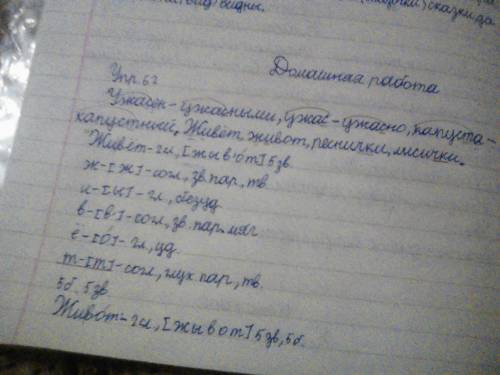 сказки, да
видны.
Домашняя работа
Упр. 62
Ужасен - ужасными, ужас - ужасно, капуста -
капустный. Живёт, живот, реснички, лисички.
Живёт - гл., [жыв'от] 5 зв
ж - [ж] - согл, зв. пар., тв.
и - [ы] - гл., безуд
в - [в'] - согл, зв. пар. мяг
ё - [о] - гл, уд.
т - [т] - согл, глух. пар., тв.
5б. 5 зв
Живот - гл, [жывот] 5 зв, 5б.